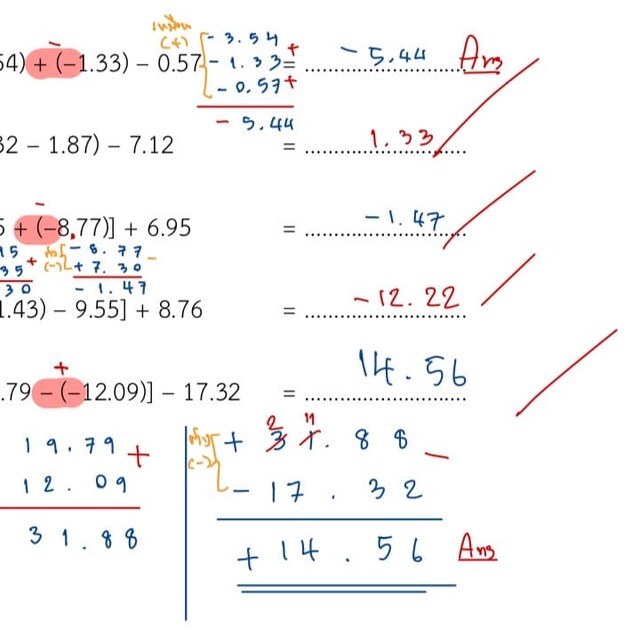 เหมือน
(+) - 3.54 +
54) + (-1.33) - 0.57 - 1.33 = - 5.44 Ans
- 0.57 +
- 5.44
32 - 1.87) - 7.12 = 1.33
-
5 + (-8.77)] + 6.95 = -1.47
15 + ต่าง - 8.77 -
35 (-) + 7.30
30 - 1.47
1.43) - 9.55] + 8.76 = -12.22
+
.79 - (-12.09)] - 17.32 = 14.56
2 11
19.79 + ต่าง + 31.88 -
12.09 (-) - 17.32
31.88 + 14.56 Ans